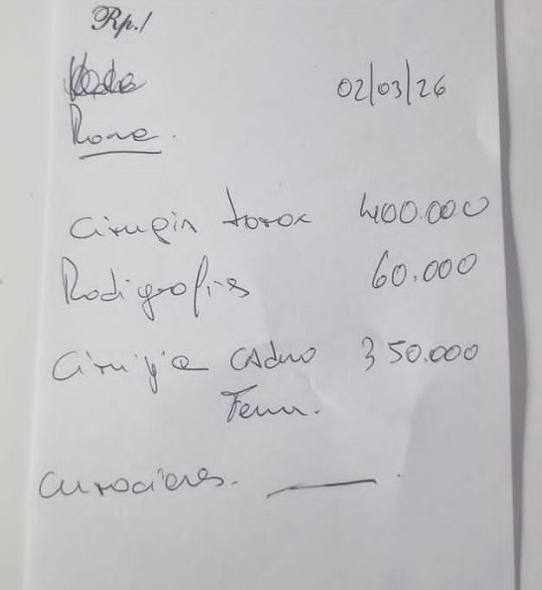 Rp./
02/03/26
Rone.
Cirugia torax 400.000
Radigrafias 60.000
Cirugia Cadera 350.000
Femur.
Curaciones. ———.